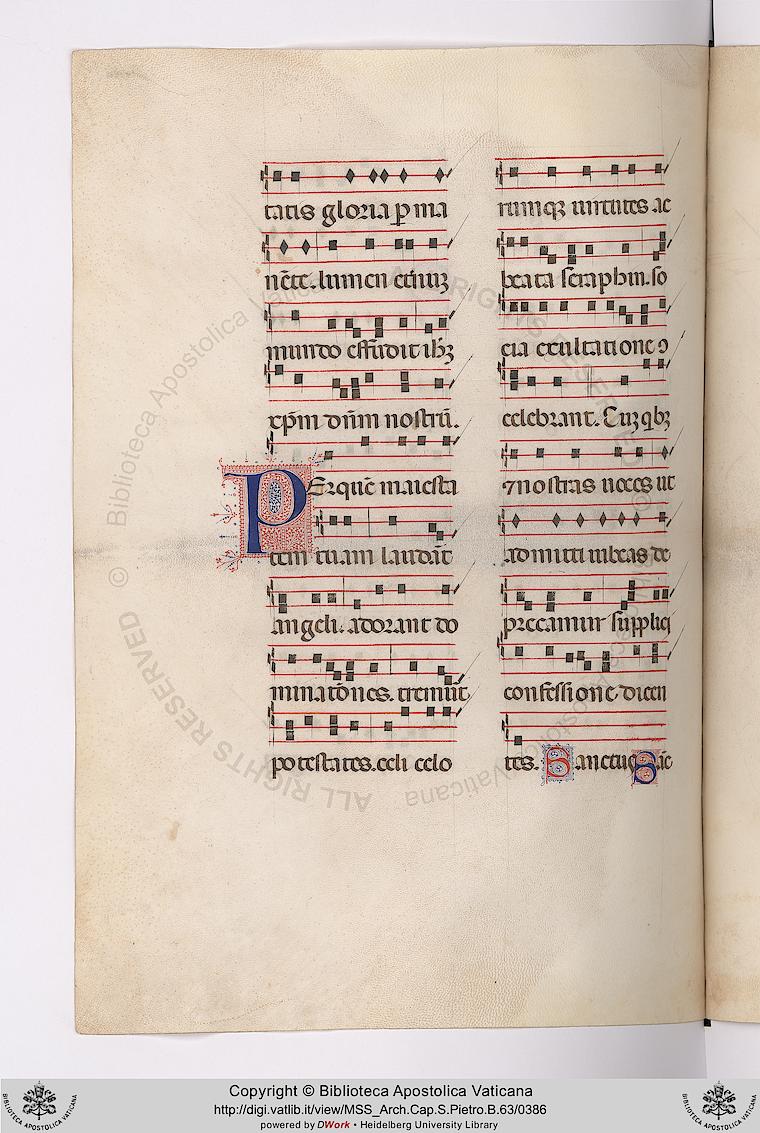 tatis gloria p ma
nēte. lumen etnuz
mundo effudit ihz
xpm dnm nostrū.
PErquē maiesta
tem tuam laudāt
angeli. adorant do
minatōnes. tremūt
potestates. celi celo
rumqz uirtutes ac
beata seraphin. so
cia exultatione ɔ
celebrant. Cuz qbz
⁊ nostras uoces ut
admitti iubeas de
precamur supplici
confessione dicen
tes. Sanctus Sāc
© Biblioteca Apostolica Vaticana
ALL RIGHTS RESERVED
Copyright © Biblioteca Apostolica Vaticana
http://digi.vatlib.it/view/MSS_Arch.Cap.S.Pietro.B.63/0386
powered by DWork • Heidelberg University Library
BIBLIOTECA APOSTOLICA VATICANA
BIBLIOTECA APOSTOLICA VATICANA